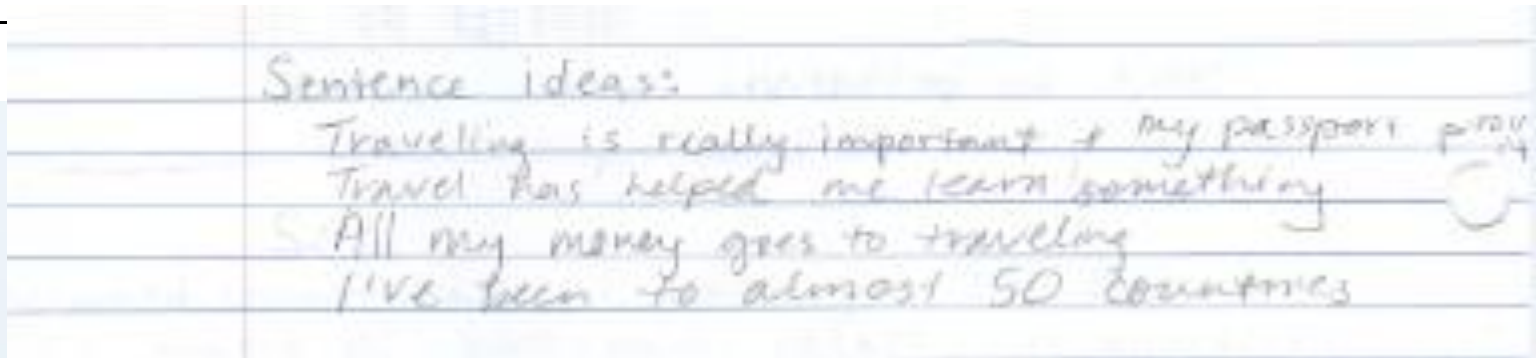 Sentence ideas:
Traveling is really important + my passport proves it
Travel has helped me learn something
All my money goes to traveling
I've been to almost 50 countries